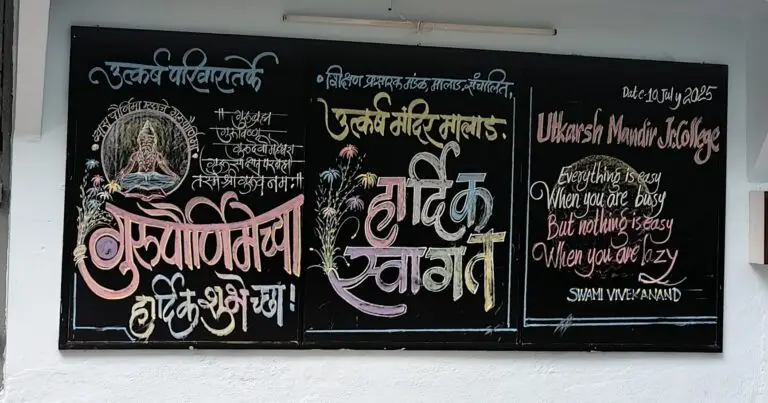 उत्कर्ष परिवारातर्फे
गुरुब्रह्मा
गुरुर्विष्णु
गुरुर्देवो महेश्वरा
तस्मै श्री गुरुवे नमः ॥
गुरुपौर्णिमेच्या
हार्दिक शुभेच्छा!
• शिक्षण प्रसारक मंडळ, मालाड, संचालित,
उत्कर्ष मंदिर मालाड.
हार्दिक
स्वागत
Date:-10 July 2025
Utkarsh Mandir Jr.College
Everything is easy
When you are busy
But nothing is easy
When you are lazy
SWAMI VIVEKANAND